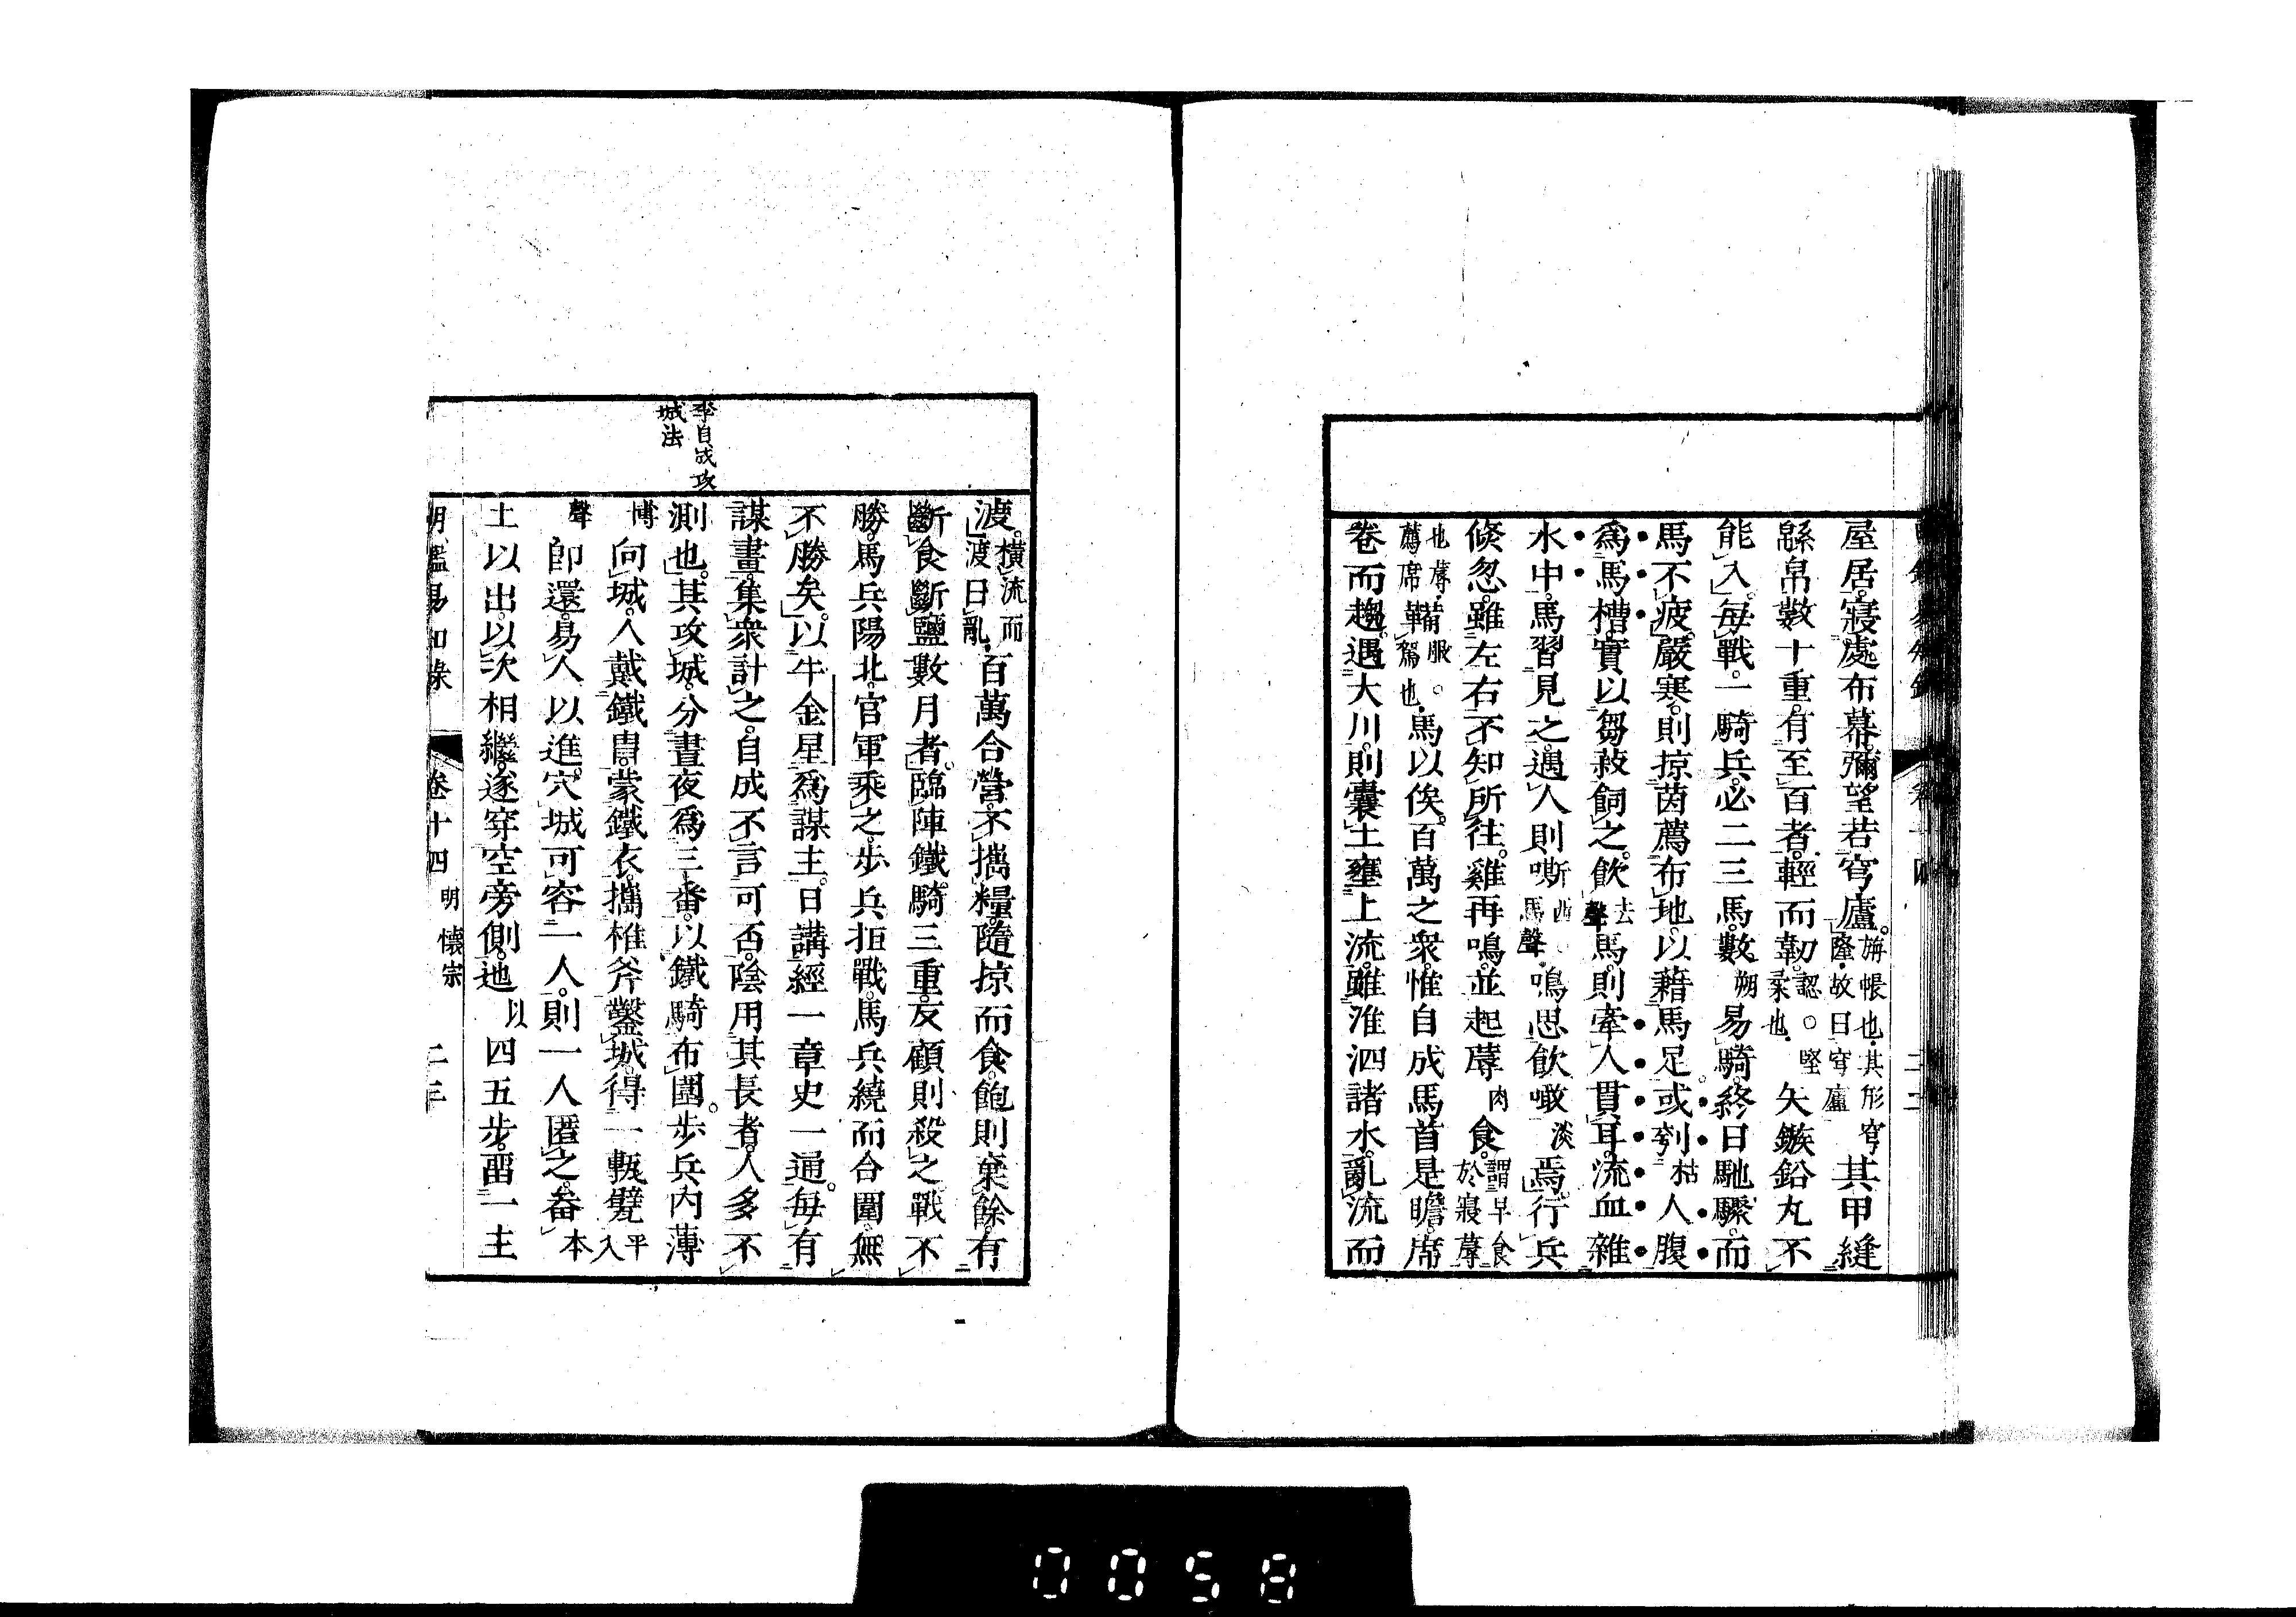 屋居。寢處布幕。彌望若穹廬。旃帳也。其形穹隆。故曰穹廬其甲縫
緜帛數十重。有至百者。輕而韌。認。○堅柔也。矢鏃鉛丸不
能入。每戰。一騎兵。必二三馬。數朔易騎。終日馳驟。而
馬不疲。嚴寒。則掠茵薦布地。以藉馬足。或刳枯人腹
爲馬槽。實以芻菽飼之。飲去聲馬。則牽人貫耳。流血雜
水中。馬習見之。遇人則嘶西馬聲。鳴思飲噉淡焉。行兵
倏忽。雖左右不知所往。雞再鳴。並起蓐肉食。謂早食於寢蓐
也。蓐。薦席鞴服。○駕也。馬以俟。百萬之衆。惟自成馬首是瞻。席
卷而趨。遇大川。則囊土壅上流。雖淮泗諸水。亂流而
李自成攻
城法
渡。橫流而渡曰亂。百萬合營。不攜糧。隨掠而食。飽則棄餘。有
斷食斷鹽數月者。臨陣鐵騎三重。反顧則殺之。戰不
勝。馬兵陽北。官軍乘之。步兵拒戰。馬兵繞而合圍。無
不勝矣。以牛金星爲謀主。日講經一章史一通。每有
謀畫。集衆計之。自成不言可否。陰用其長者。人多不
測也。其攻城。分晝夜爲三番。以鐵騎布圍。步兵內薄
博向城。人戴鐵胄。蒙鐵衣。攜椎斧鑿城。得一甎甓平入
聲卽還。易人以進。穴城可容一人。則一人匿之。畚本
土以出。以次相繼。遂穿空旁側。迤以四五步。畱一土
明鑑易知錄 卷十四 明懷宗 二三